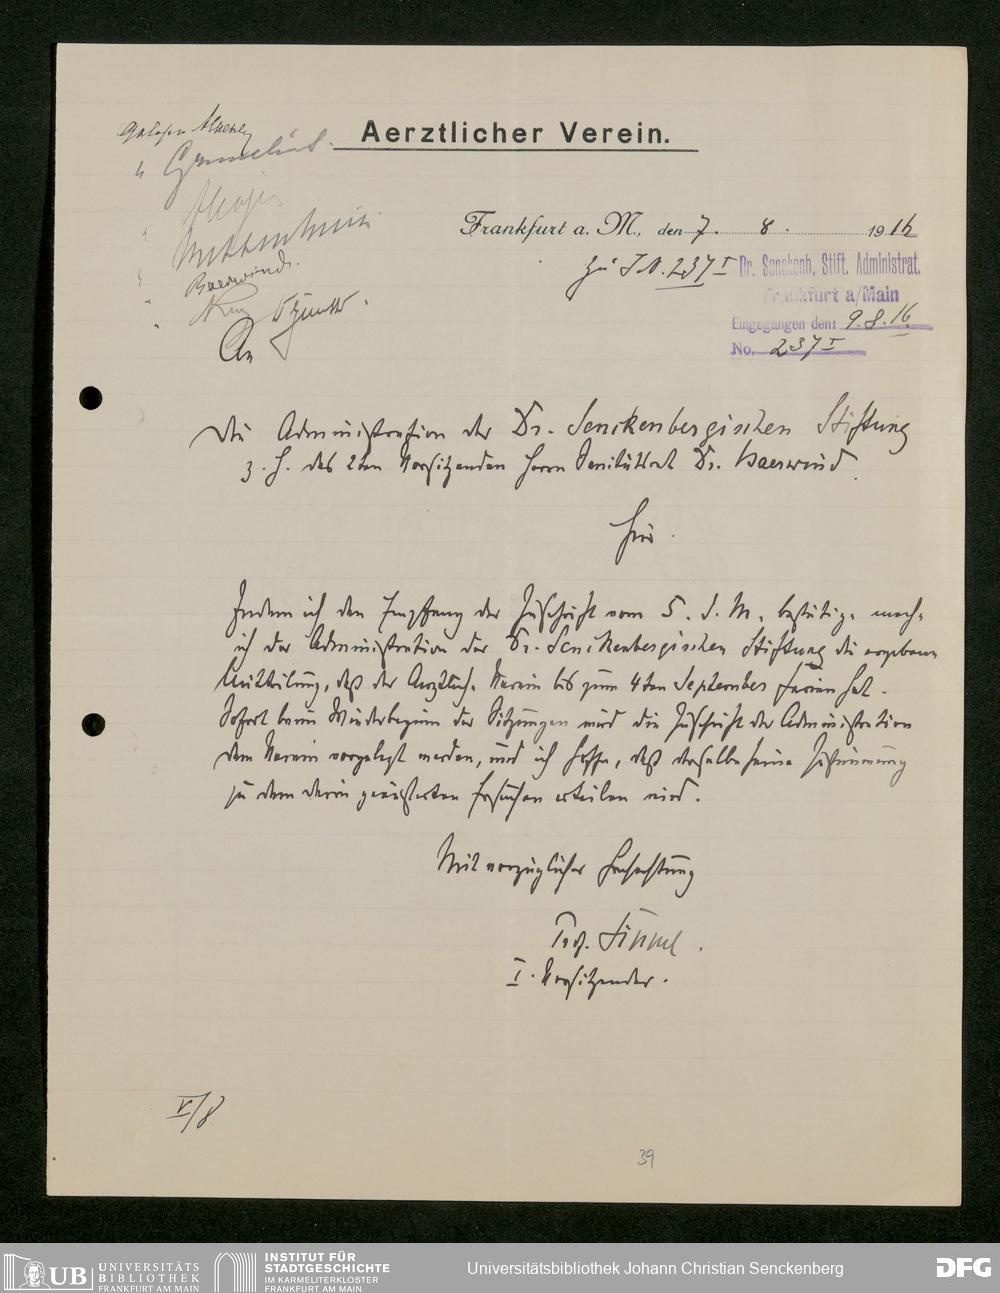 Gelesen
Aerztlicher Verein.
Frankfurt a. M., den 7. 8. 1916
Zu J.N. 237 I
Dr. Senckenb. Stift. Administrat.
Frankfurt a/Main
Eingegangen den: 9.8.16
No. 237 I
Baerwind.
An
die Administration der Dr. Senckenbergischen Stiftung
z. H. des 2ten Vorsitzenden Herrn Sanitätsrat Dr. Baerwind.
Hier.
Indem ich den Empfang der Zuschrift vom 5. d. M. bestätige mache
ich der Administration der Dr. Senckenbergischen Stiftung die ergebene
Mitteilung, daß der Aerztliche Verein bis zum 4ten September Ferien hat.
Sofort beim Wiederbeginn der Sitzungen wird die Zuschrift der Administration
dem Verein vorgelegt werden, und ich hoffe, daß derselbe seine Zustimmung
zu dem darin geäußerten Ersuchen erteilen wird.
Mit vorzüglicher Hochachtung
Prof.
I. Vorsitzender.
V/8
39
UB UNIVERSITÄTS
BIBLIOTHEK
FRANKFURT AM MAIN
INSTITUT FÜR
STADTGESCHICHTE
IM KARMELITERKLOSTER
FRANKFURT AM MAIN
Universitätsbibliothek Johann Christian Senckenberg
DFG